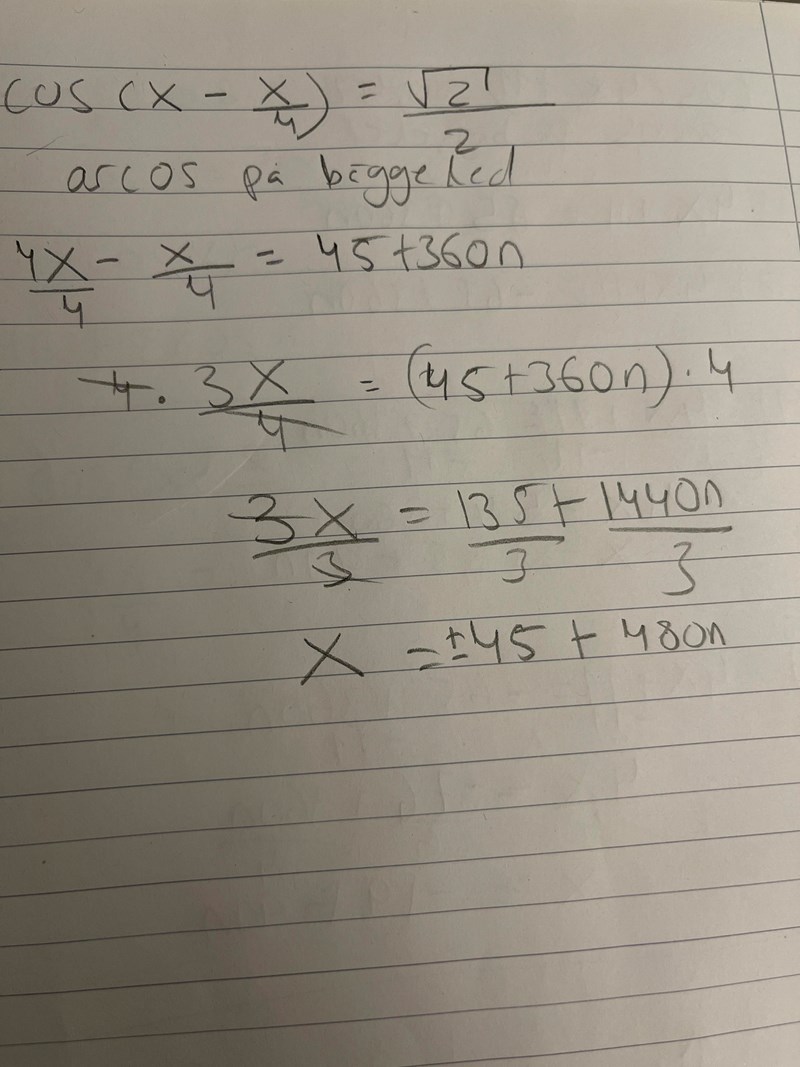 cos (x - x/4) = √2/2
arcos på bägge led
4x/4 - x/4 = 45+360n
4 · 3x/4 = (45+360n) · 4
3x/3 = 135/3 + 1440n/3
x = ±45 + 480n